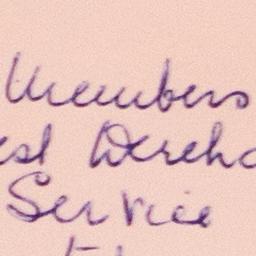 Members
est Wareho
Service